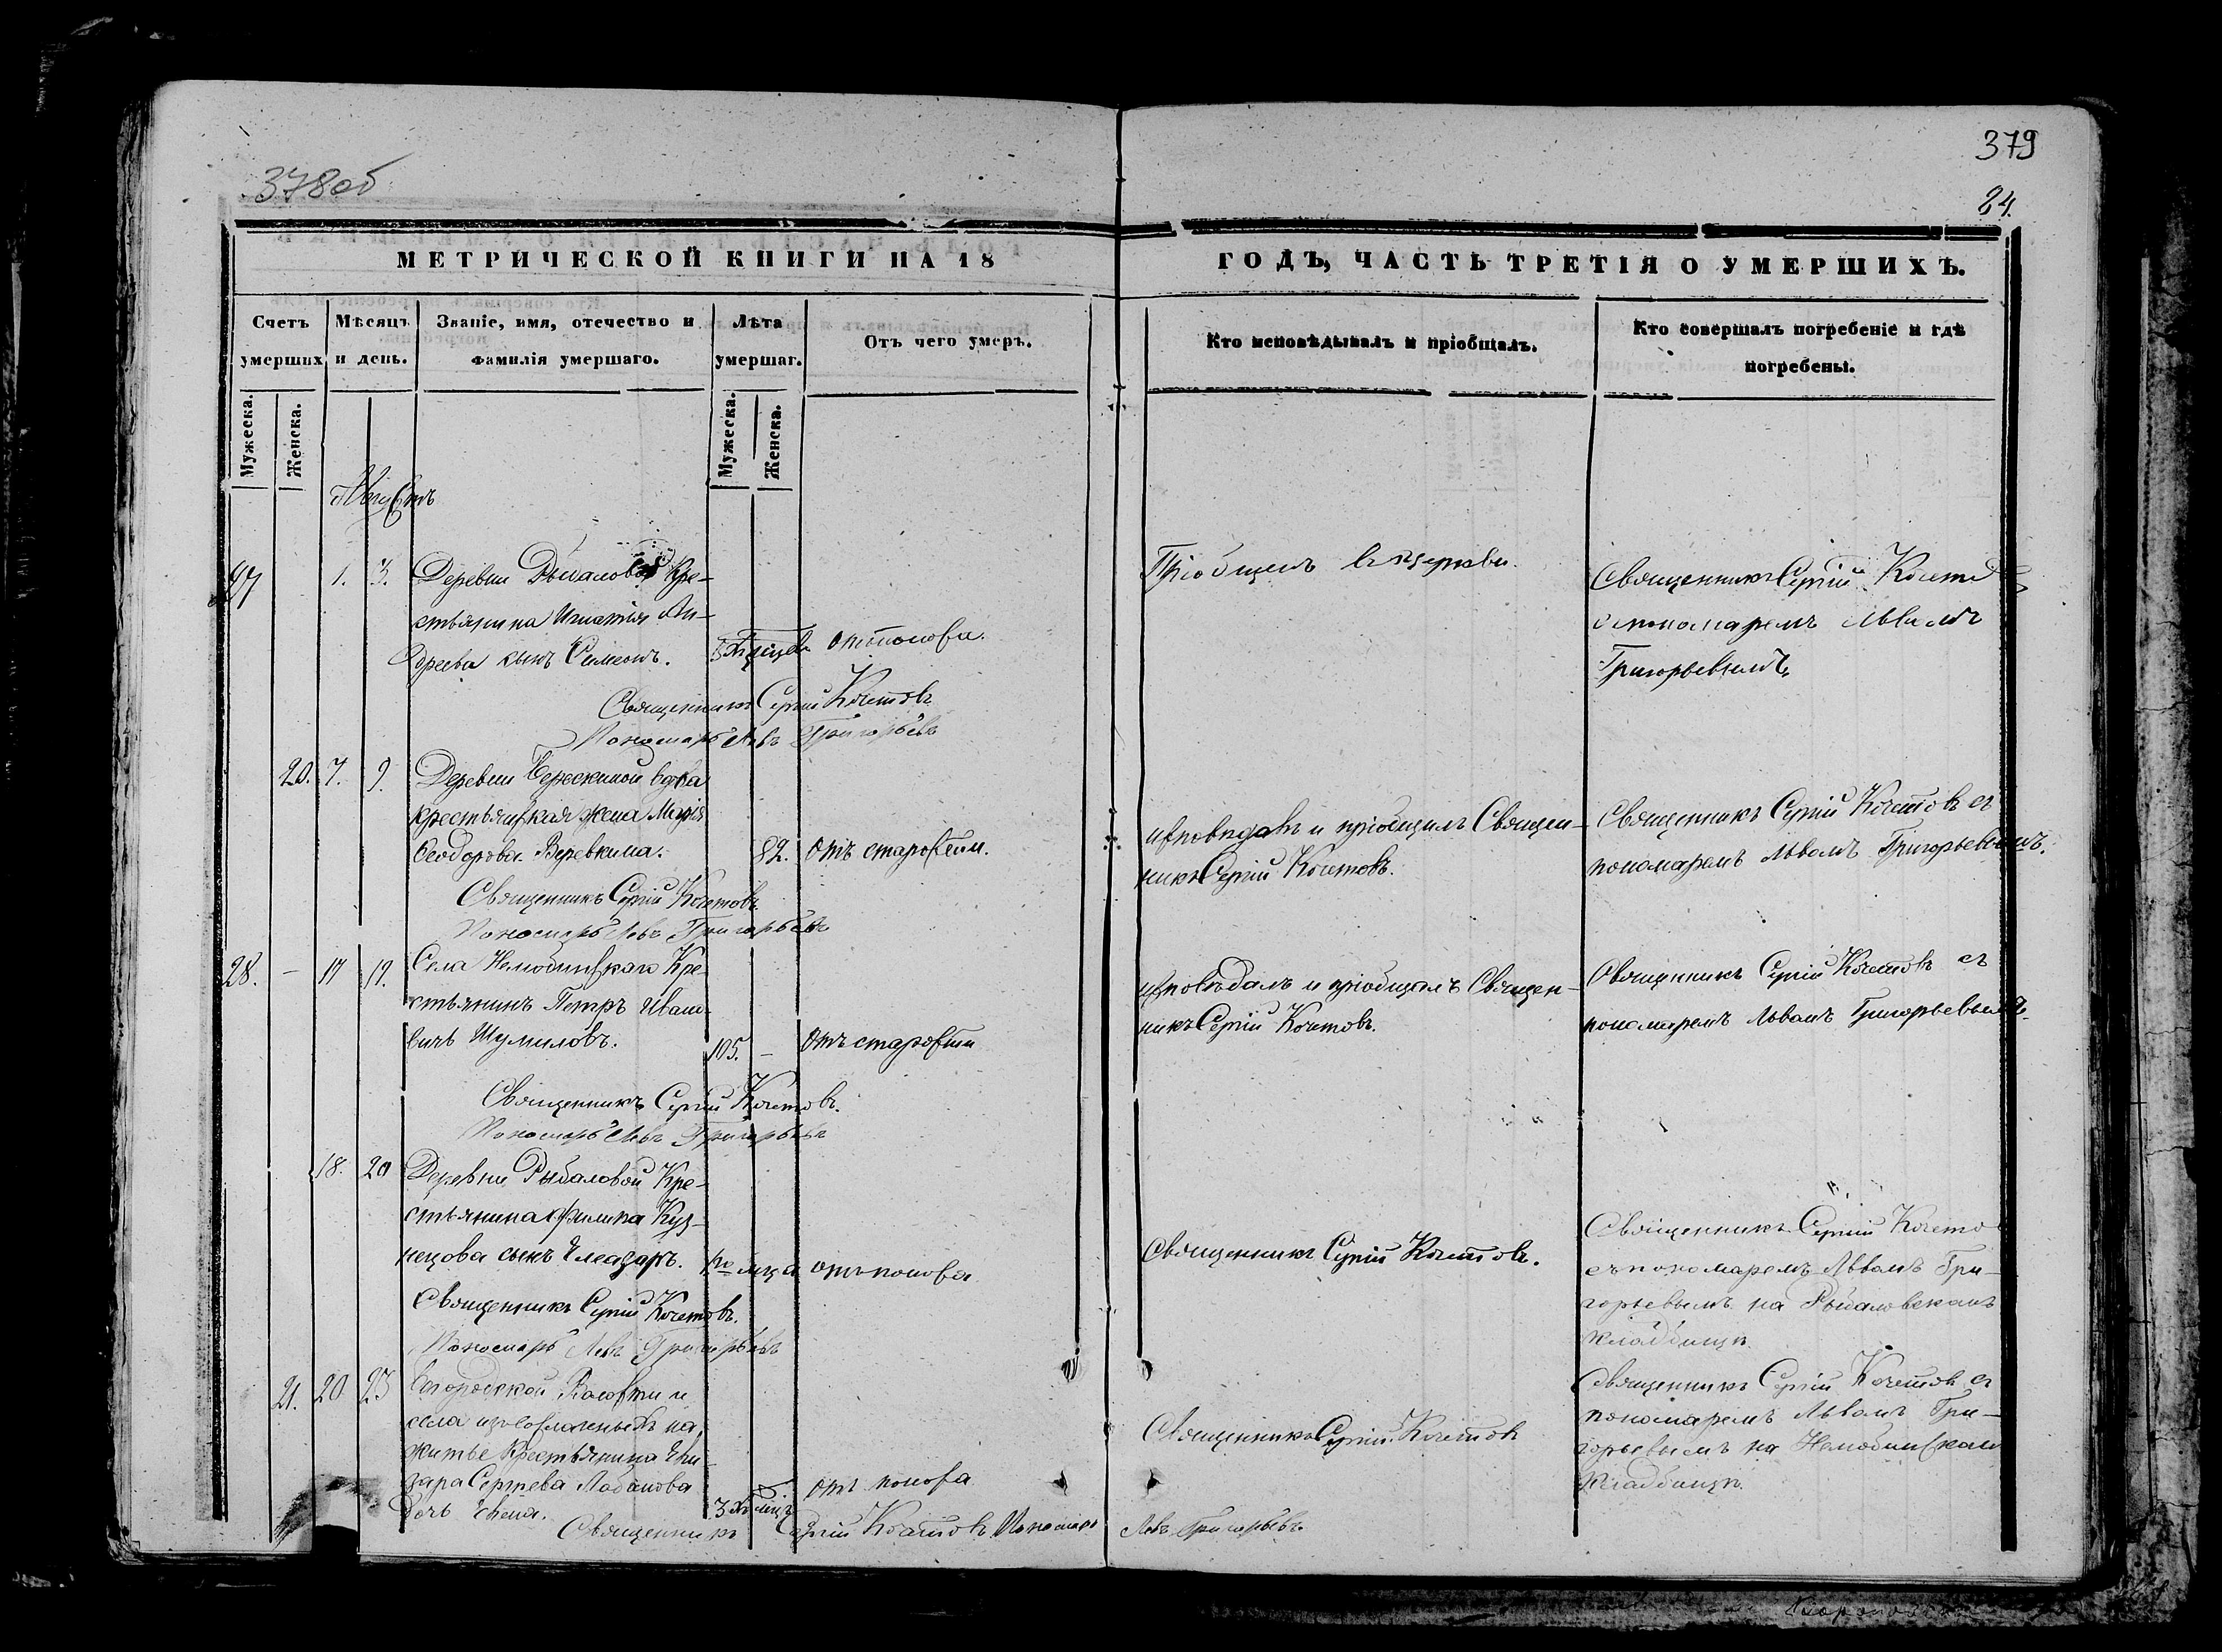 378об
379
84.
МЕТРИЧЕСКОЙ КНИГИ НА 18
ГОДЪ, ЧАСТЬ ТРЕТІЯ О УМЕРШИХЪ.
Счетъ умерших
Мѣсяцъ и день.
Званіе, имя, отечество и фамилія умершаго.
Лѣта умершаг.
Отъ чего умеръ.
Кто исповѣдывалъ и пріобщалъ.
Кто совершалъ погребеніе и гдѣ погребены.
Мужеска.
Женска.
Мужеска.
Женска.
Августъ
27
1. 3.
Деревни Кре-
стьянина Игнатія Ан-
дреева сынъ Симеонъ.
5
отъ поноса.
Пріобщенъ въ церкви.
Священникъ Сергій Кочетов
с пономаремъ Львомъ
Григорьевымъ
Священникъ Сергій Кочетовъ
Пономарь Левъ Григорьевъ
20. 7. 9.
Деревни вдова
крестьянская жена Марія
Феодорова Веревкина.
82.
Отъ старости.
исповѣдалъ и пріобщилъ Священ-
никъ Сергій Кочетовъ.
Священникъ Сергій Кочетовъ съ
пономаремъ Львомъ Григорьевымъ.
Священникъ Сергій Кочетовъ
Пономарь Левъ Григорьевъ
28. – 17 19.
Села Нелюбинскаго Кре-
стьянинъ Петръ Ивано-
вичъ Шумиловъ.
105. –
Отъ старости
исповѣдалъ и пріобщилъ Священ-
никъ Сергій Кочетовъ.
Священникъ Сергій Кочетовъ съ
пономаремъ Львомъ Григорьевымъ.
Священникъ Сергій Кочетовъ.
Пономарь Левъ Григорьевъ
18. 20
Деревни Рыбаловой Кре-
стьянина Филипа Куз-
нецова сынъ Елеазаръ.
мца
отъ поноса
Священникъ Сергій Кочетовъ.
Священникъ Сергій Кочето
съ пономаремъ Львомъ Гри-
горьевымъ на Рыбаловскомъ
кладбищѣ.
Священникъ Сергій Кочетовъ.
Пономарь Левъ Григорьевъ
21. 20 23
Богородской Волости и
села изъ сосланныхъ на
житье Крестьянина
Сергѣева Лобанова
дочь
3хъ мцъ
отъ поноса
Священникъ Сергій Кочетовъ
Священникъ Сергій Кочетовъ съ
пономаремъ Львомъ Гри-
горьевымъ на Нелюбинскомъ
кладбищѣ.
Священникъ Сергій Кочетовъ Пономарь Левъ Григорьевъ